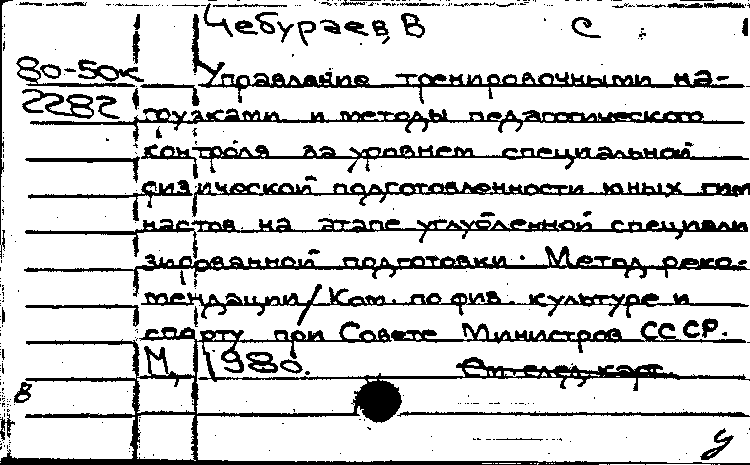 Чебураев В С
80-50к Управление тренировочными наг-
2282 рузками и методы педагогического
контроля за уровнем специальной
физической подготовленности юных гим
настов на этапе углубленной специали
зированной подготовки. Метод. реко-
мендации/Ком. по физ. культуре и
спорту при Совете Министров СССР.
М, 1980. См. след. карт.
в
у